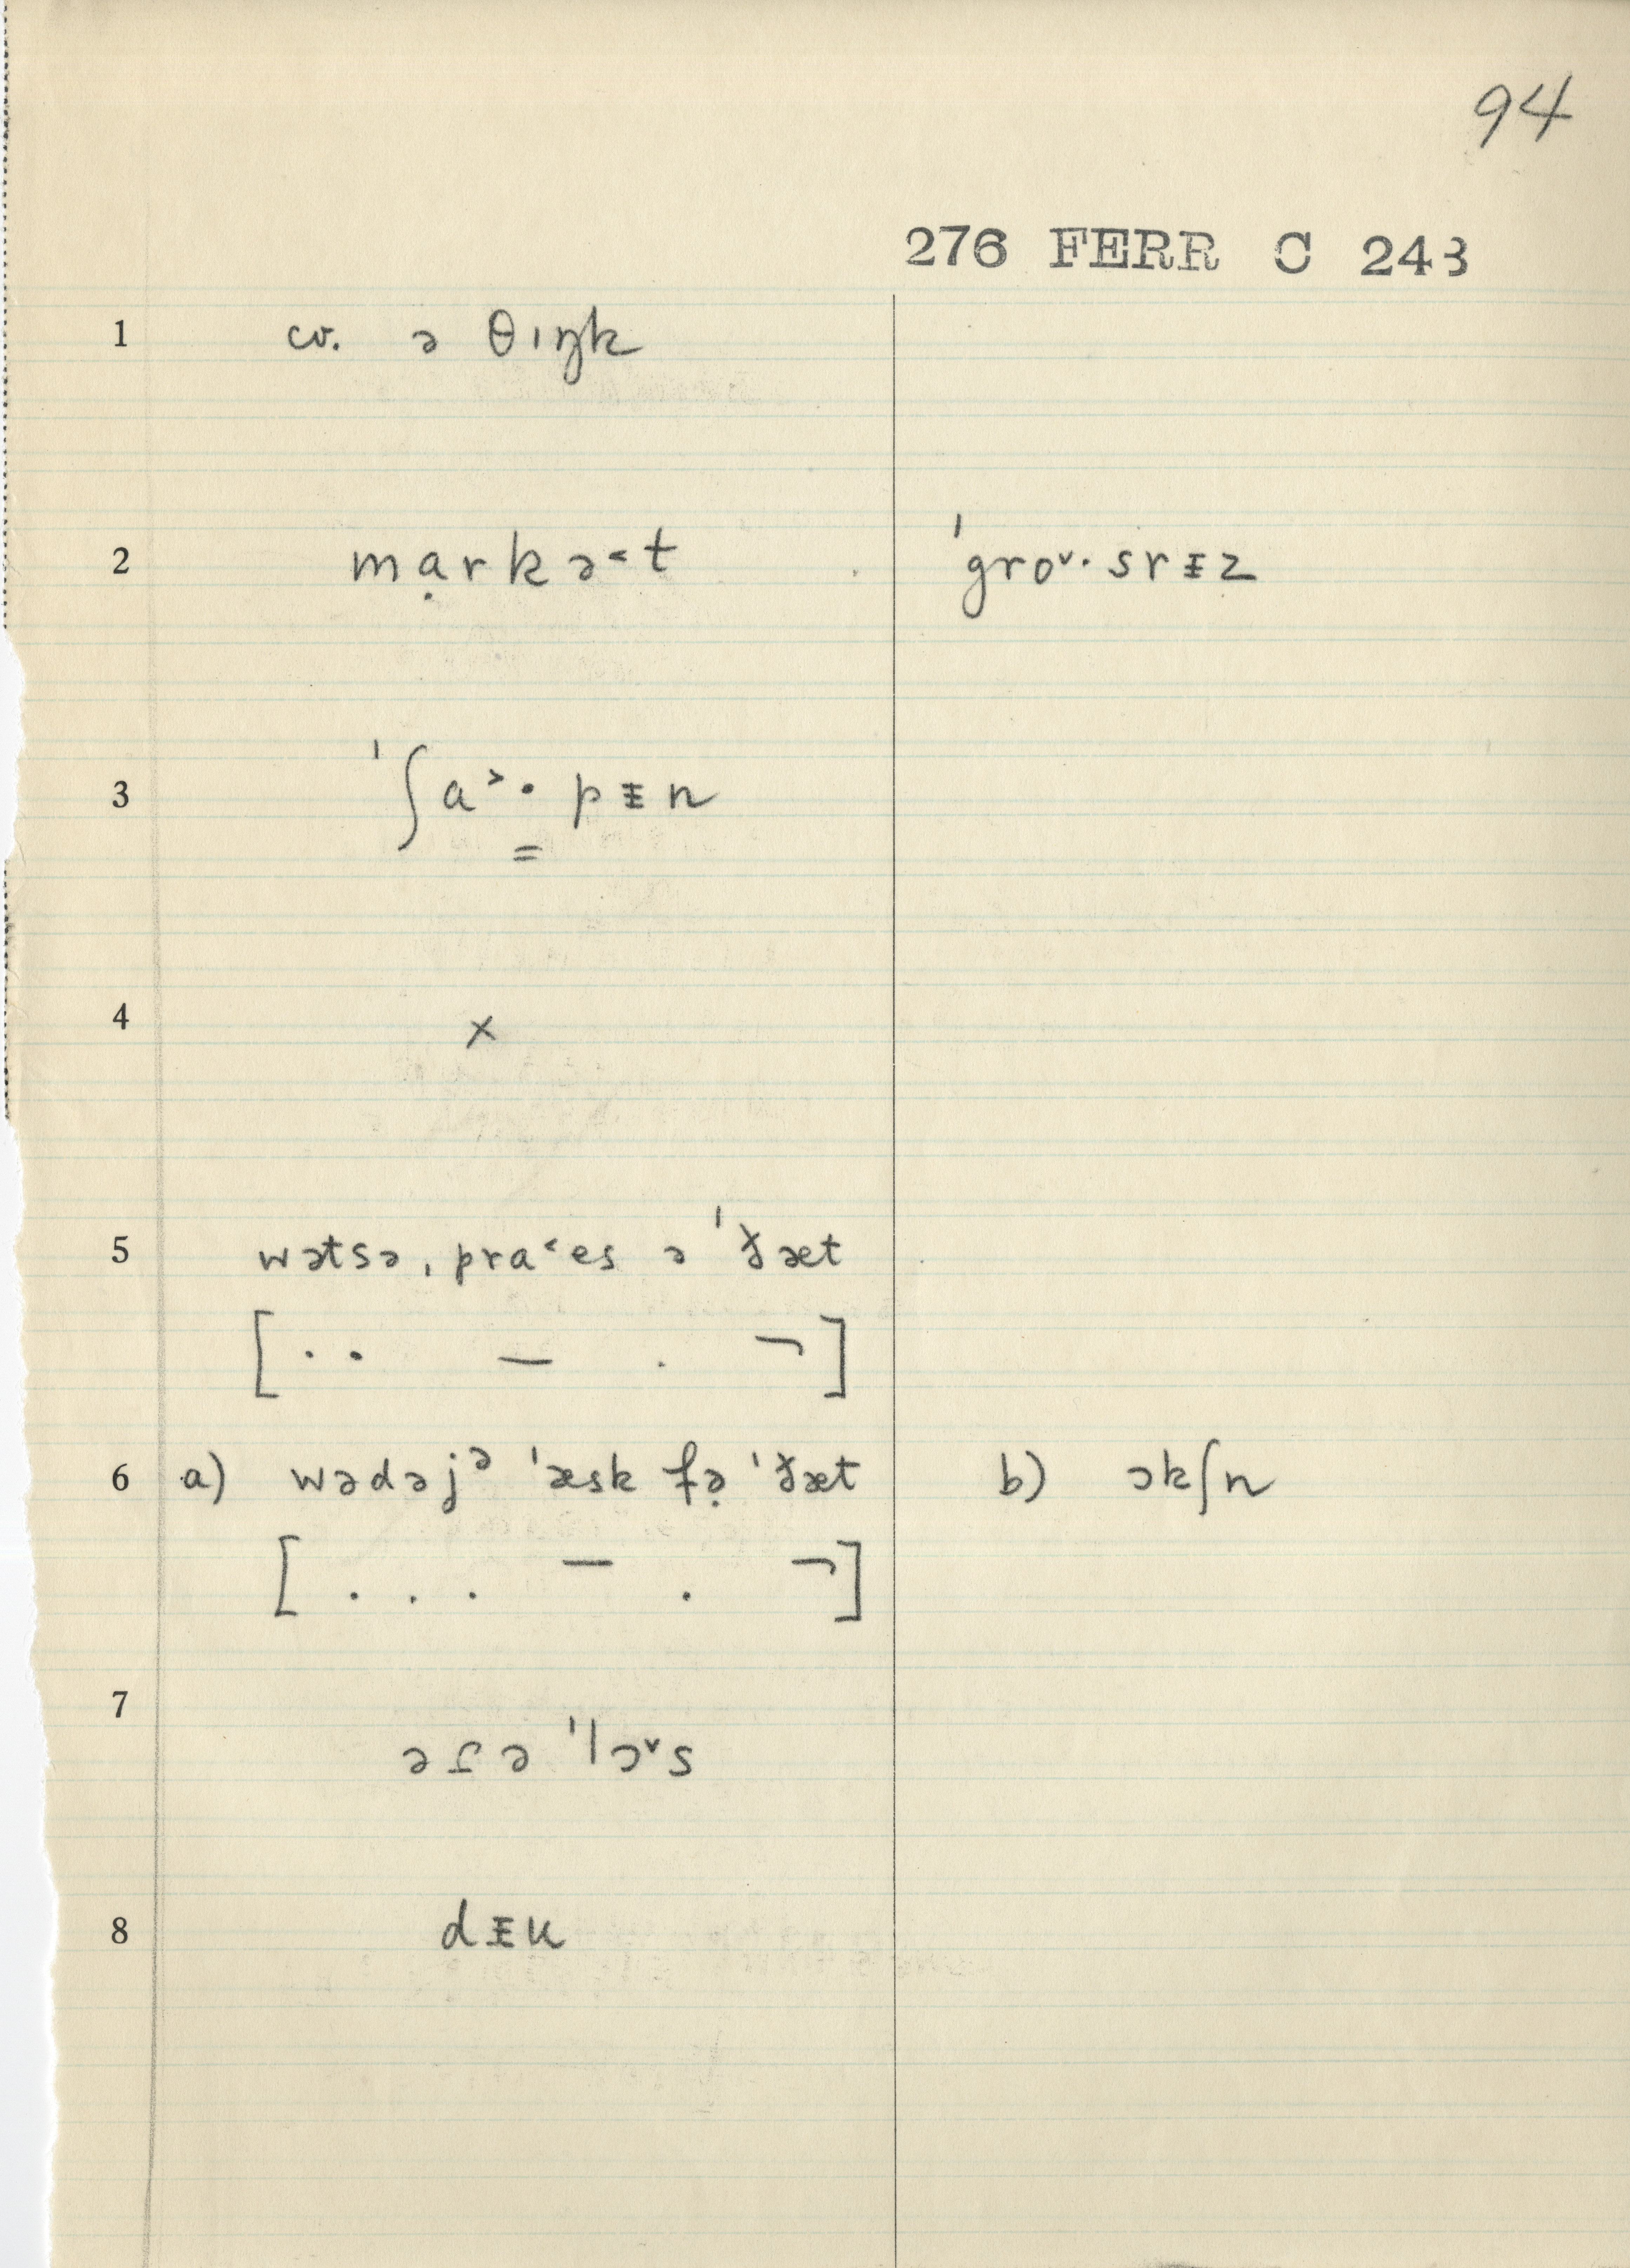 94
276 FERR C 243
1 cv. ə θɪŋk
2 mạrkə˂t ˈgro˅·srᵻz
3 ˈʃa˃·pᵻn
=
4 x
5 wətsə ˌpra˂es ə ˈðæt
[ · · — · ¬ ]
6 a) wədəjᵊ ˈæsk fə̣ ˈðæt b) ɔkʃn
[ . . . — . ¬ ]
7 ə ə ˈlɔ˅s
8 dᵻu